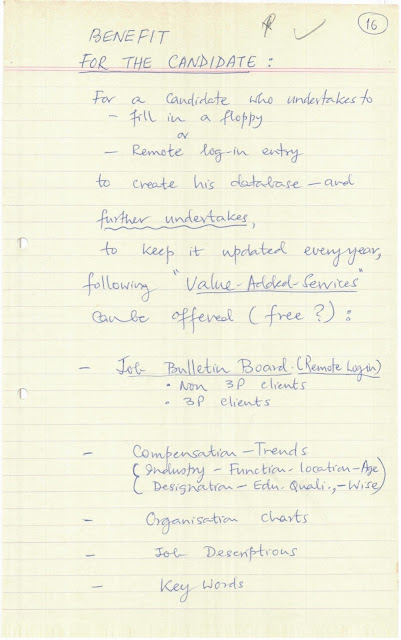 16
BENEFIT
FOR THE CANDIDATE :
For a candidate who undertakes to
- fill in a floppy
or
- Remote log-in entry
to create his database - and
further undertakes,
to keep it updated every year,
following "Value-Added-Services"
can be offered (free ?) :
- Job Bulletin Board. (Remote Login)
• Non 3P clients
• 3P clients
- Compensation - Trends
(Industry - Function - location - Age
Designation - Edu. Quali., - Wise)
- Organisation Charts
- Job Descriptions
- Key Words